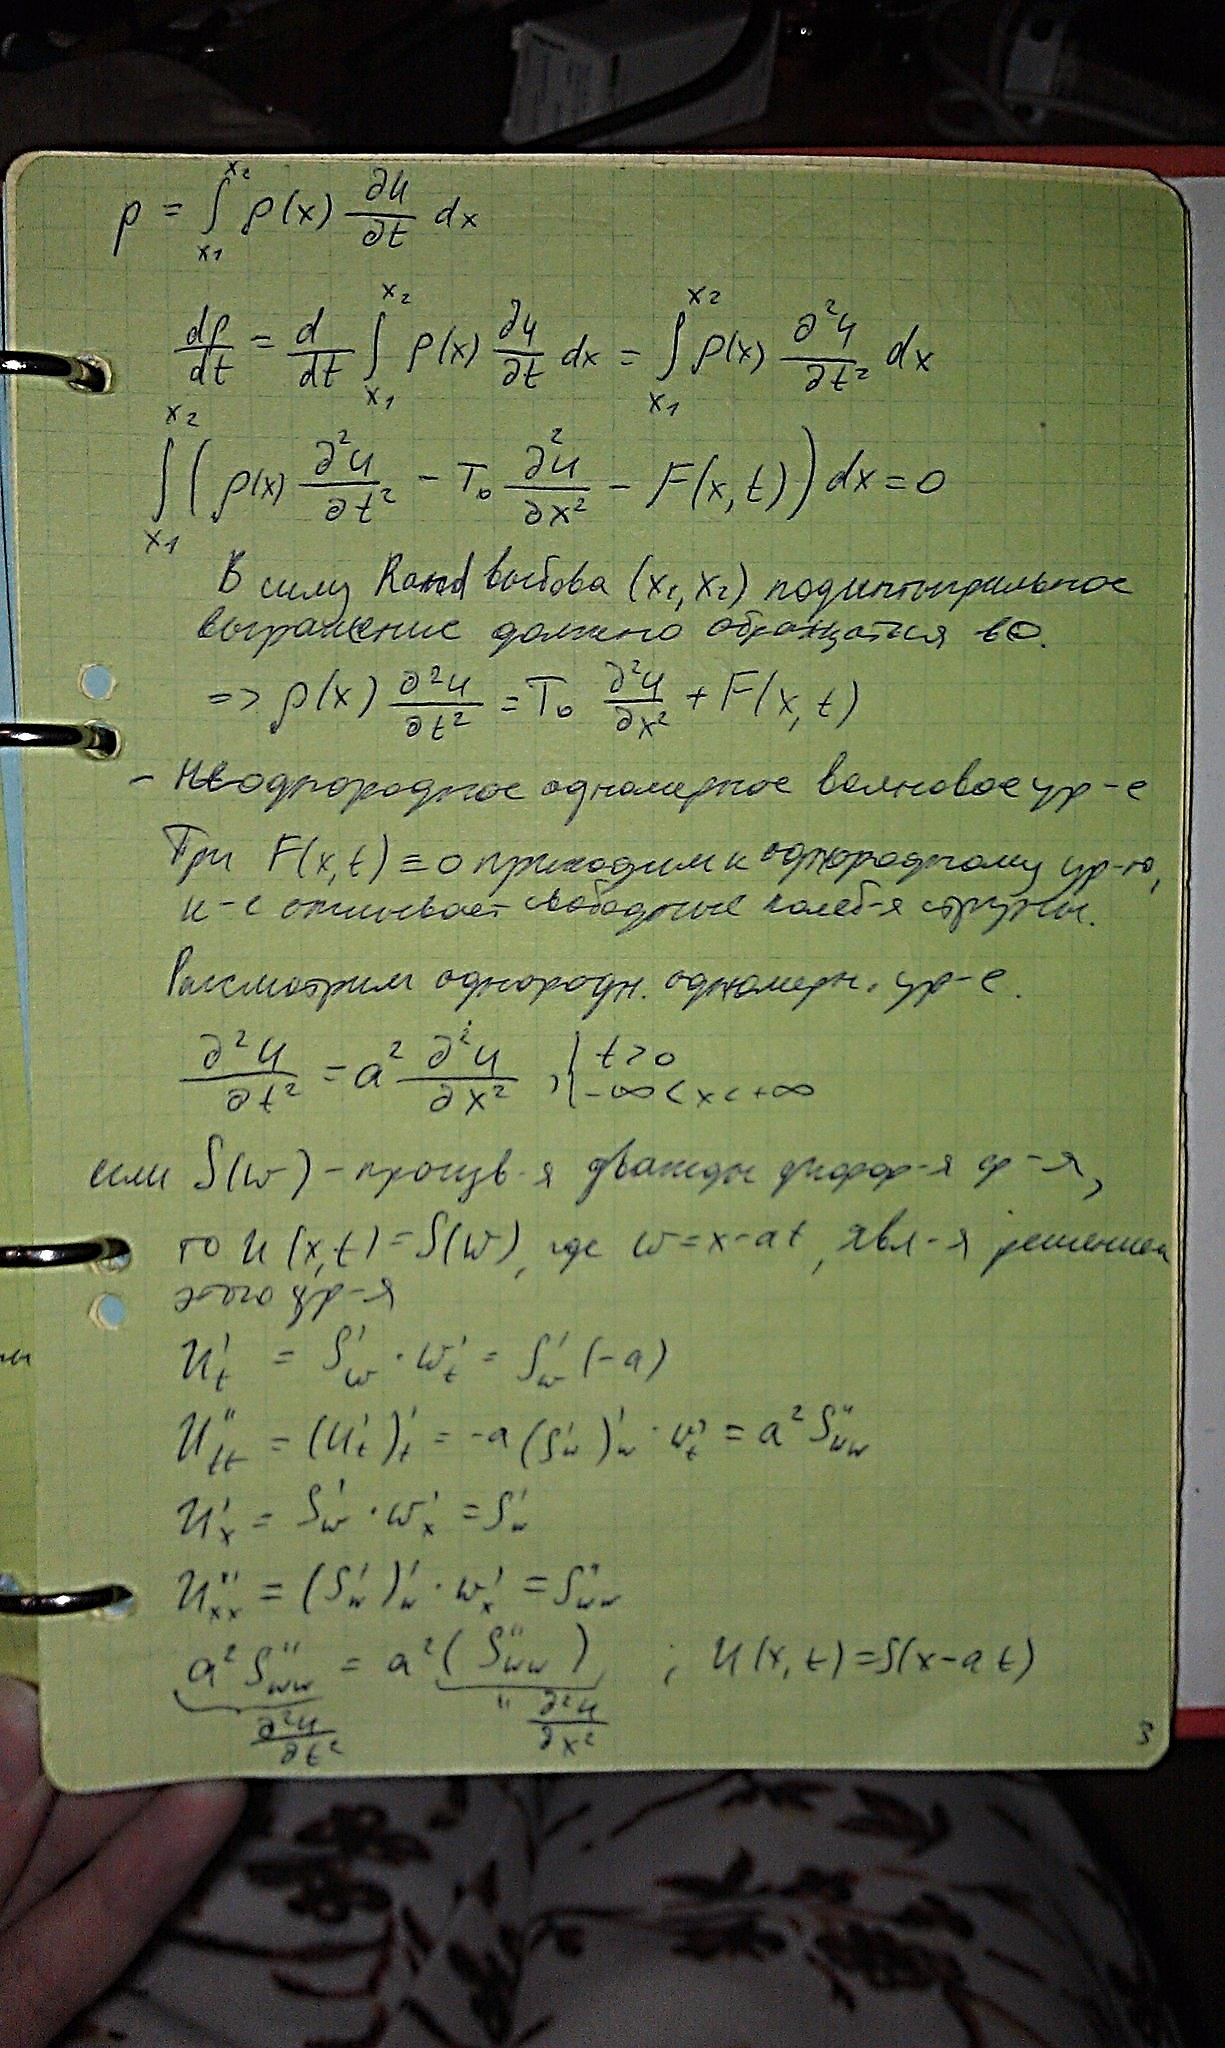 p = ∫_{x₁}^{x₂} ρ(x) ∂u/∂t dx
dp/dt = d/dt ∫_{x₁}^{x₂} ρ(x) ∂u/∂t dx = ∫_{x₁}^{x₂} ρ(x) ∂²u/∂t² dx
∫_{x₁}^{x₂} (ρ(x) ∂²u/∂t² − T₀ ∂²u/∂x² − F(x,t)) dx = 0
В силу Rand выбора (x₁, x₂) подинтегральное
выражение должно обращаться в 0.
=> ρ(x) ∂²u/∂t² = T₀ ∂²u/∂x² + F(x,t)
– неоднородное одномерное волновое ур-е
При F(x,t) ≡ 0 приходим к однородному ур-ю,
к-е описывает свободные колеб-я струны.
Рассмотрим однородн. одномерн. ур-е.
∂²u/∂t² = a² ∂²u/∂x² , | t>0
| −∞ < x < +∞
если S(w) – произв-я дважды дифф-я ф-я,
то u(x,t) = S(w), где w = x−at, явл-я решением
этого ур-я
u'_t = S'_w · w'_t = S'_w (−a)
u''_tt = (u'_t)'_t = −a (S'_w)'_w · w'_t = a² S''_ww
u'_x = S'_w · w'_x = S'_w
u''_xx = (S'_w)'_w · w'_x = S''_ww
a² S''_ww = a² (S''_ww) ; u(x,t) = S(x−at)
∂²u/∂t² " ∂²u/∂x²
3